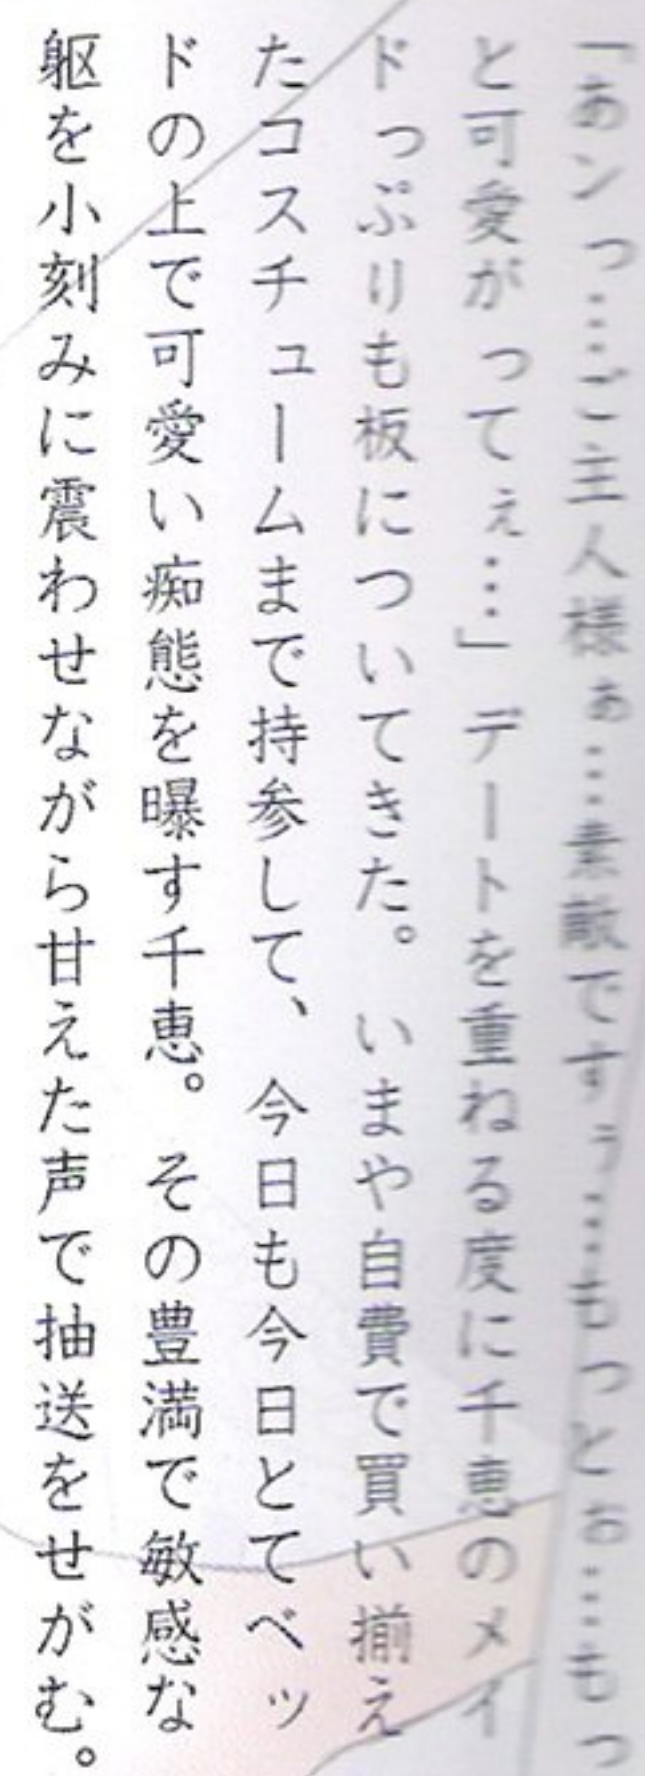 「あンっ…ご主人様ぁ…素敵ですぅ…もっとぉ…もっ
と可愛がってぇ…」デートを重ねる度に千恵のメイ
ドっぷりも板についてきた。いまや自費で買い揃え
たコスチュームまで持参して、今日も今日とてベッ
ドの上で可愛い痴態を曝す千恵。その豊満で敏感な
躯を小刻みに震わせながら甘えた声で抽送をせがむ。